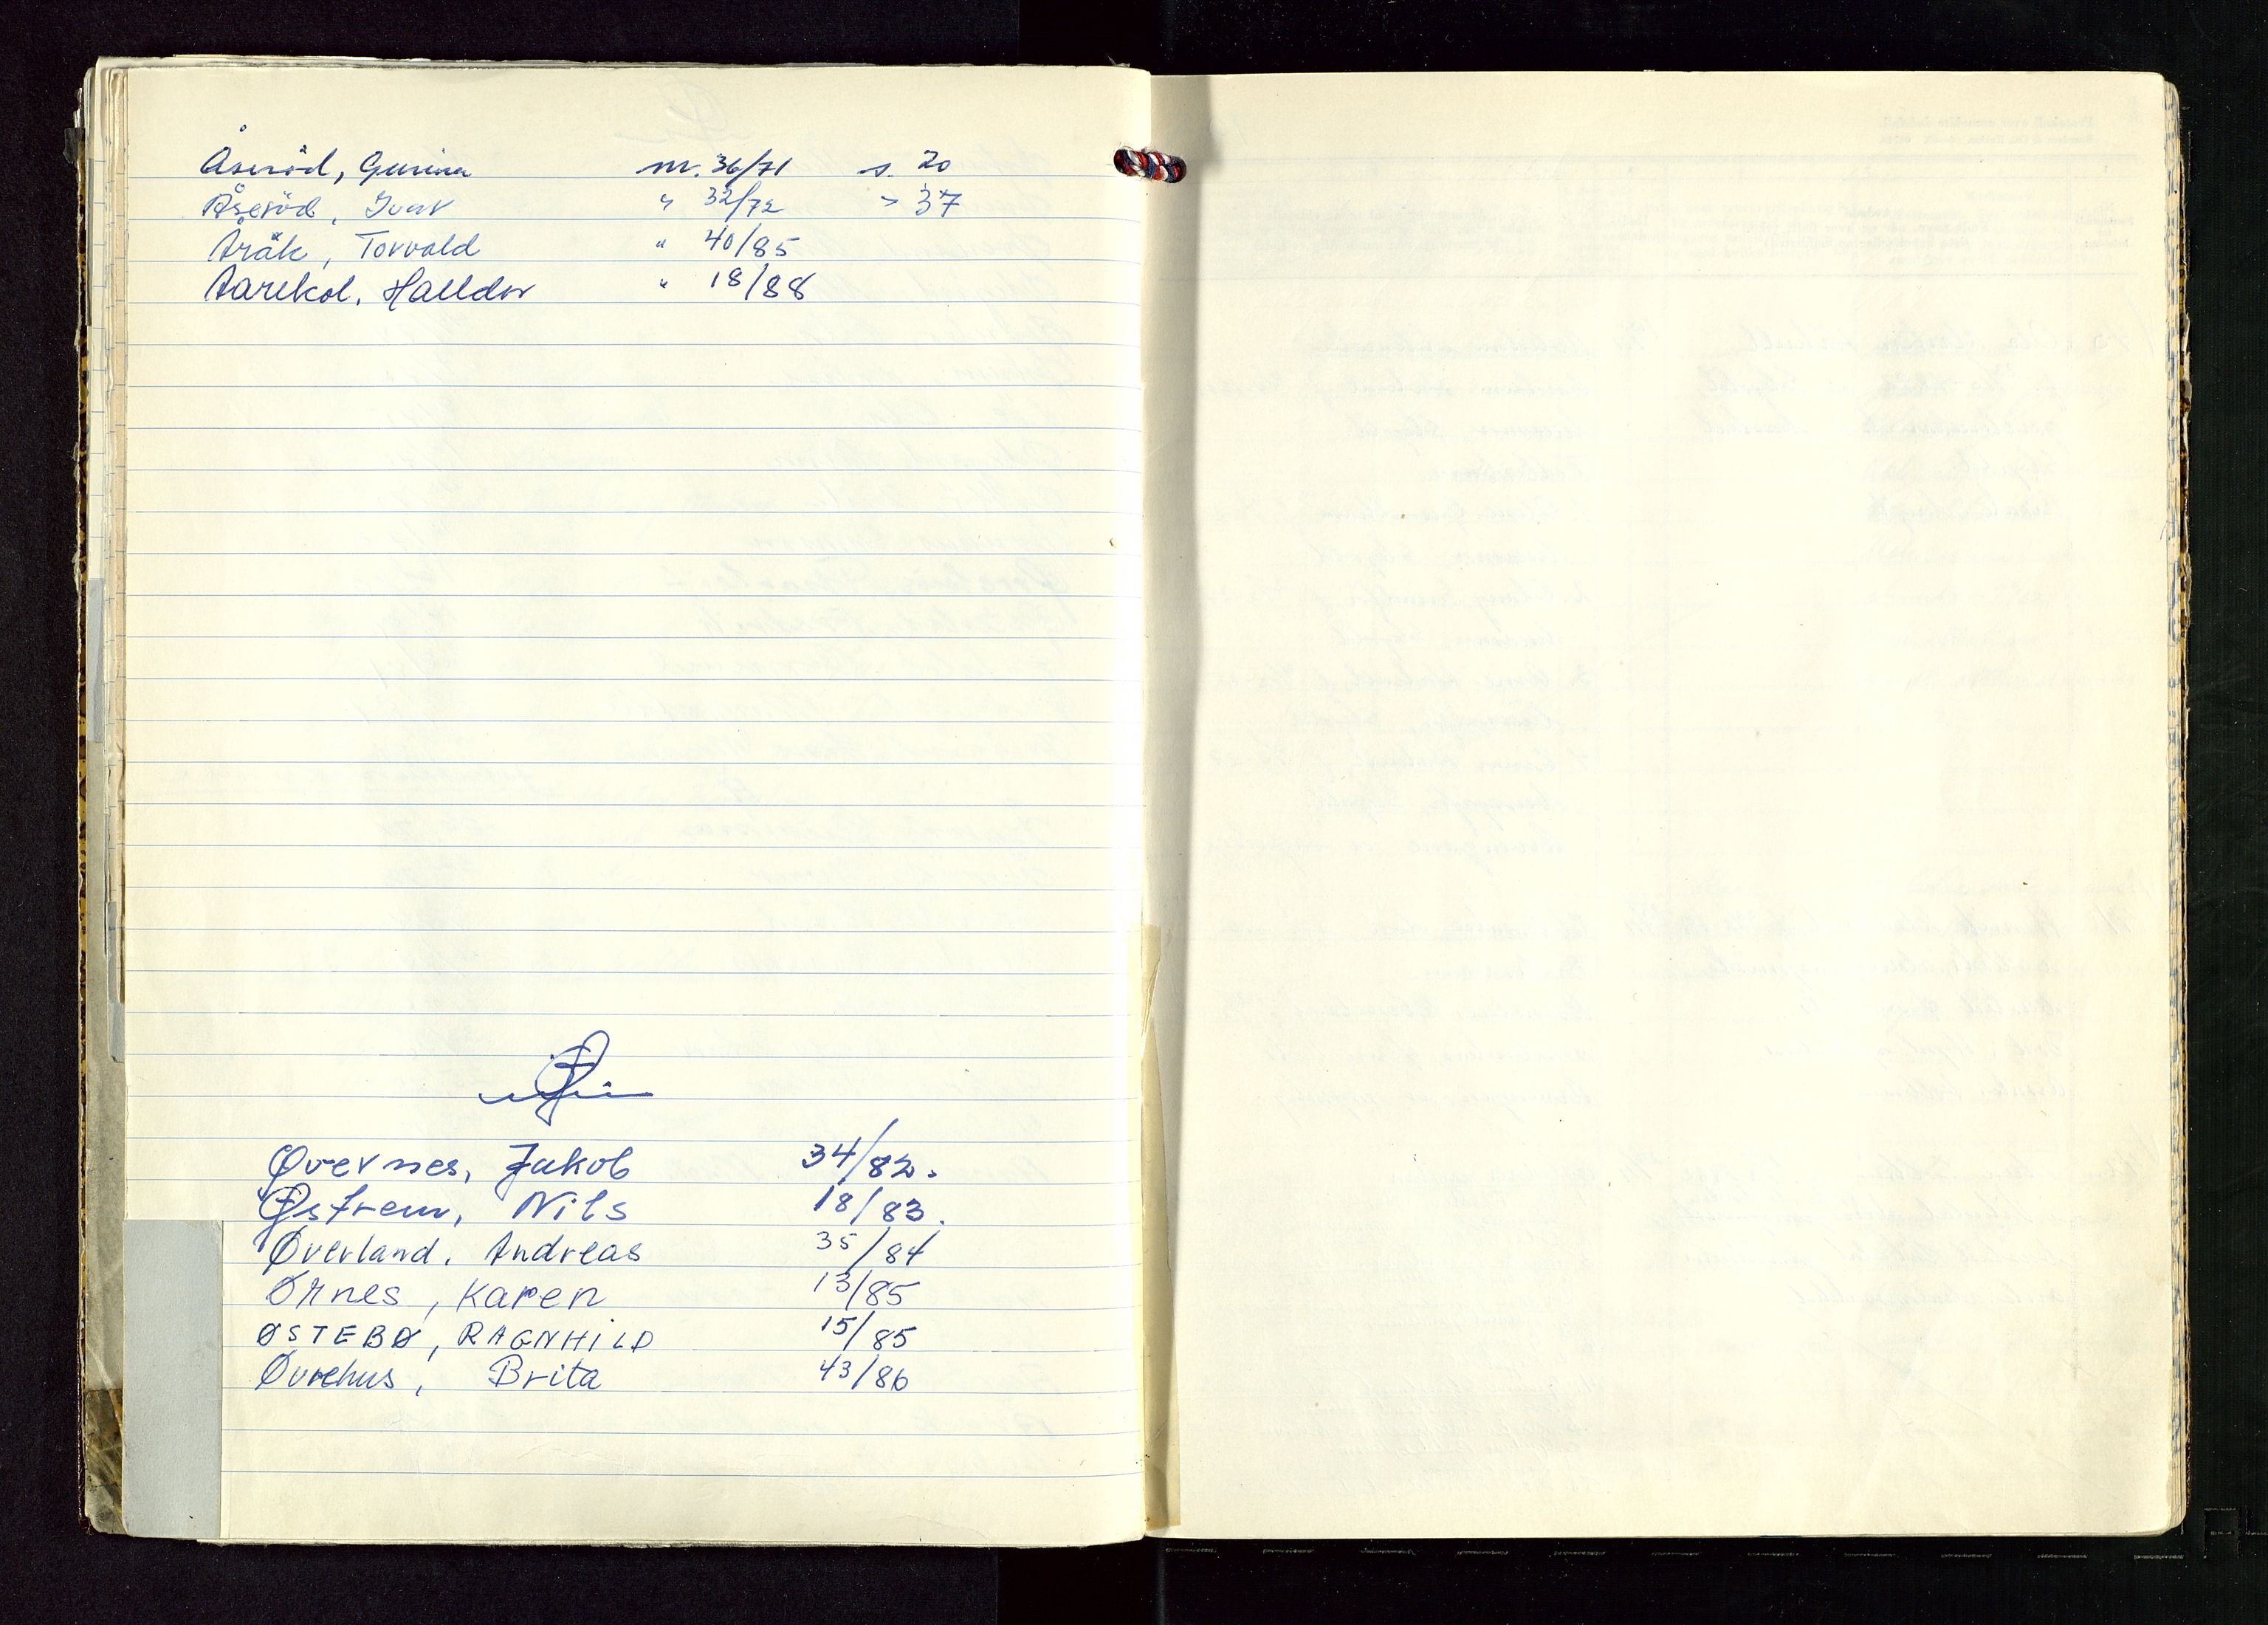 Åseröd, Gurina nr. 36/71 s. 20
Åseröd, Ivar " 32/72 " 37
Åråk, Torvald " 40/85
Aarekol, Halldor " 18/88
Ø
Øvernes, Jakob 34/82.
Østrem, Nils 18/83.
Øverland, Andreas 35/84
Ørnes, Karen 13/85
ØSTEBØ, RAGNHILD 15/85
Øvrehus, Brita 43/86